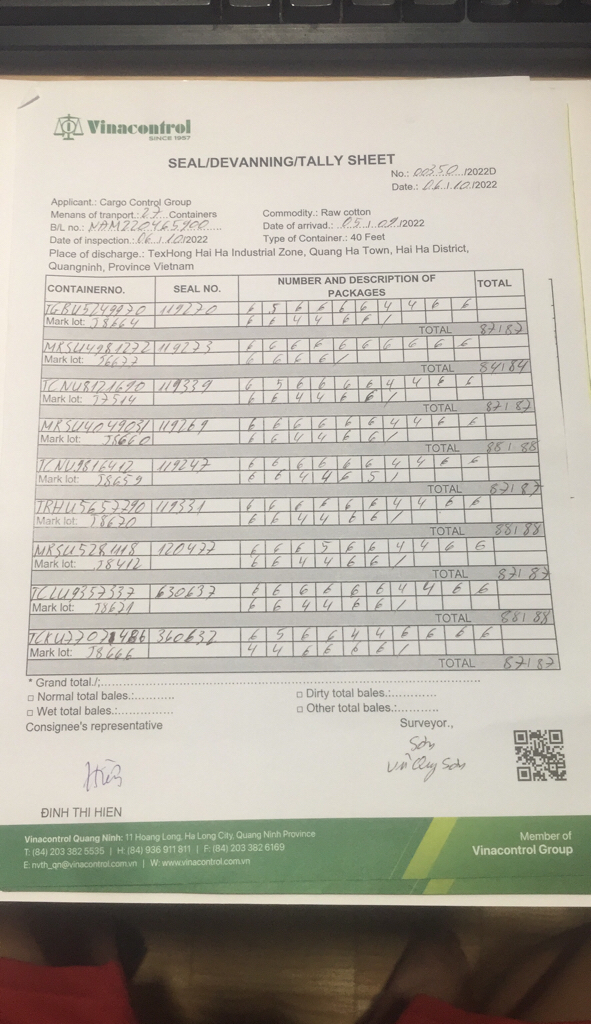 Vinacontrol
SINCE 1957
SEAL/DEVANNING/TALLY SHEET
No.: 00350../2022D
Date.: 06.1.10./2022
Applicant.: Cargo Control Group
Commodity.: Raw cotton
Menans of tranport.: 27...Containers
Date of arrivad.: .05.1.09./2022
B/L no.: NAM220465900
Type of Container.: 40 Feet
Date of inspection.: 06.1.10/2022
Place of discharge.: TexHong Hai Ha Industrial Zone, Quang Ha Town, Hai Ha District,
Quangninh, Province Vietnam
CONTAINERNO. SEAL NO. NUMBER AND DESCRIPTION OF PACKAGES TOTAL
TGBU5249970 119270 6 5 6 6 6 6 4 4 6 6
Mark lot: J8664 6 6 4 4 6 6 /
TOTAL 87187
MRSU4981272 119273 6 6 6 6 6 6 6 6 6 6
Mark lot: J6677 6 6 6 6 /
TOTAL 84184
TCNU8121690 119339 6 5 6 6 6 6 4 4 6 6
Mark lot: J7514 6 6 4 4 6 6 /
TOTAL 87187
MRSU4049031 119269 6 6 6 6 6 6 4 4 6 6
Mark lot: J8660 6 6 4 4 6 6 /
TOTAL 88188
119247 6 6 6 6 6 6 4 4 6 6
Mark lot: J8659 6 6 4 4 6 5 /
TOTAL 87187
TRHU5657290 119331 6 6 6 6 6 6 4 4 6 6
Mark lot: J8670 6 6 4 4 6 6 /
TOTAL 88188
120477 6 6 6 5 6 6 4 4 6 6
Mark lot: J8412 6 6 4 4 6 6 /
TOTAL 87187
TCLU9357337 630637 6 6 6 6 6 6 4 4 6 6
Mark lot: J8671 6 6 4 4 6 6 /
TOTAL 88188
360632 6 5 6 6 4 4 6 6 6 6
Mark lot: J8666 4 4 6 6 6 6 /
TOTAL 87187
* Grand total./:
□ Normal total bales.:
□ Dirty total bales.:
□ Wet total bales.:
□ Other total bales.:
Consignee's representative
Surveyor.,
Hiền
Sơn
Sơn
ĐINH THI HIEN
Vinacontrol Quang Ninh: 11 Hoang Long, Ha Long City, Quang Ninh Province
T: (84) 203 382 5535 | H: (84) 936 911 811 | F: (84) 203 382 6169
E: nvth_qn@vinacontrol.com.vn | W: www.vinacontrol.com.vn
Member of
Vinacontrol Group